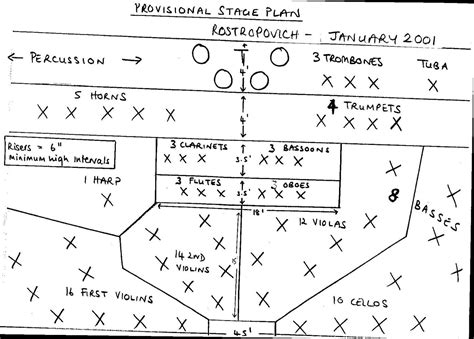 PROVISIONAL STAGE PLAN
ROSTROPOVICH - JANUARY 2001
← PERCUSSION →
4'
3 TROMBONES
TUBA
5 HORNS
4'
4 TRUMPETS
Risers = 6"
minimum high intervals
3 CLARINETS
3.5'
3 BASSOONS
1 HARP
3 FLUTES
3.5'
3 OBOES
8
BASSES
18'
12 VIOLAS
14 2ND
VIOLINS
15'
16 FIRST VIOLINS
10 CELLOS
45'